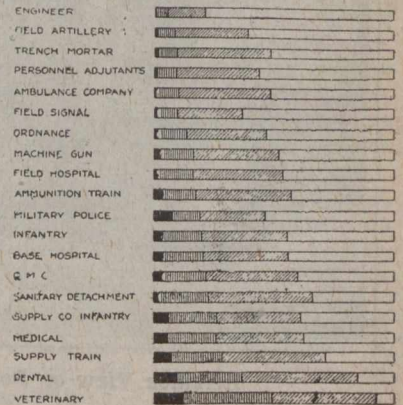 ENGINEER
FIELD ARTILLERY
TRENCH MORTAR
PERSONNEL ADJUTANTS
AMBULANCE COMPANY
FIELD SIGNAL
ORDNANCE
MACHINE GUN
FIELD HOSPITAL
AMMUNITION TRAIN
MILITARY POLICE
INFANTRY
BASE HOSPITAL
Q M C
SANITARY DETACHMENT
SUPPLY CO INFANTRY
MEDICAL
SUPPLY TRAIN
DENTAL
VETERINARY